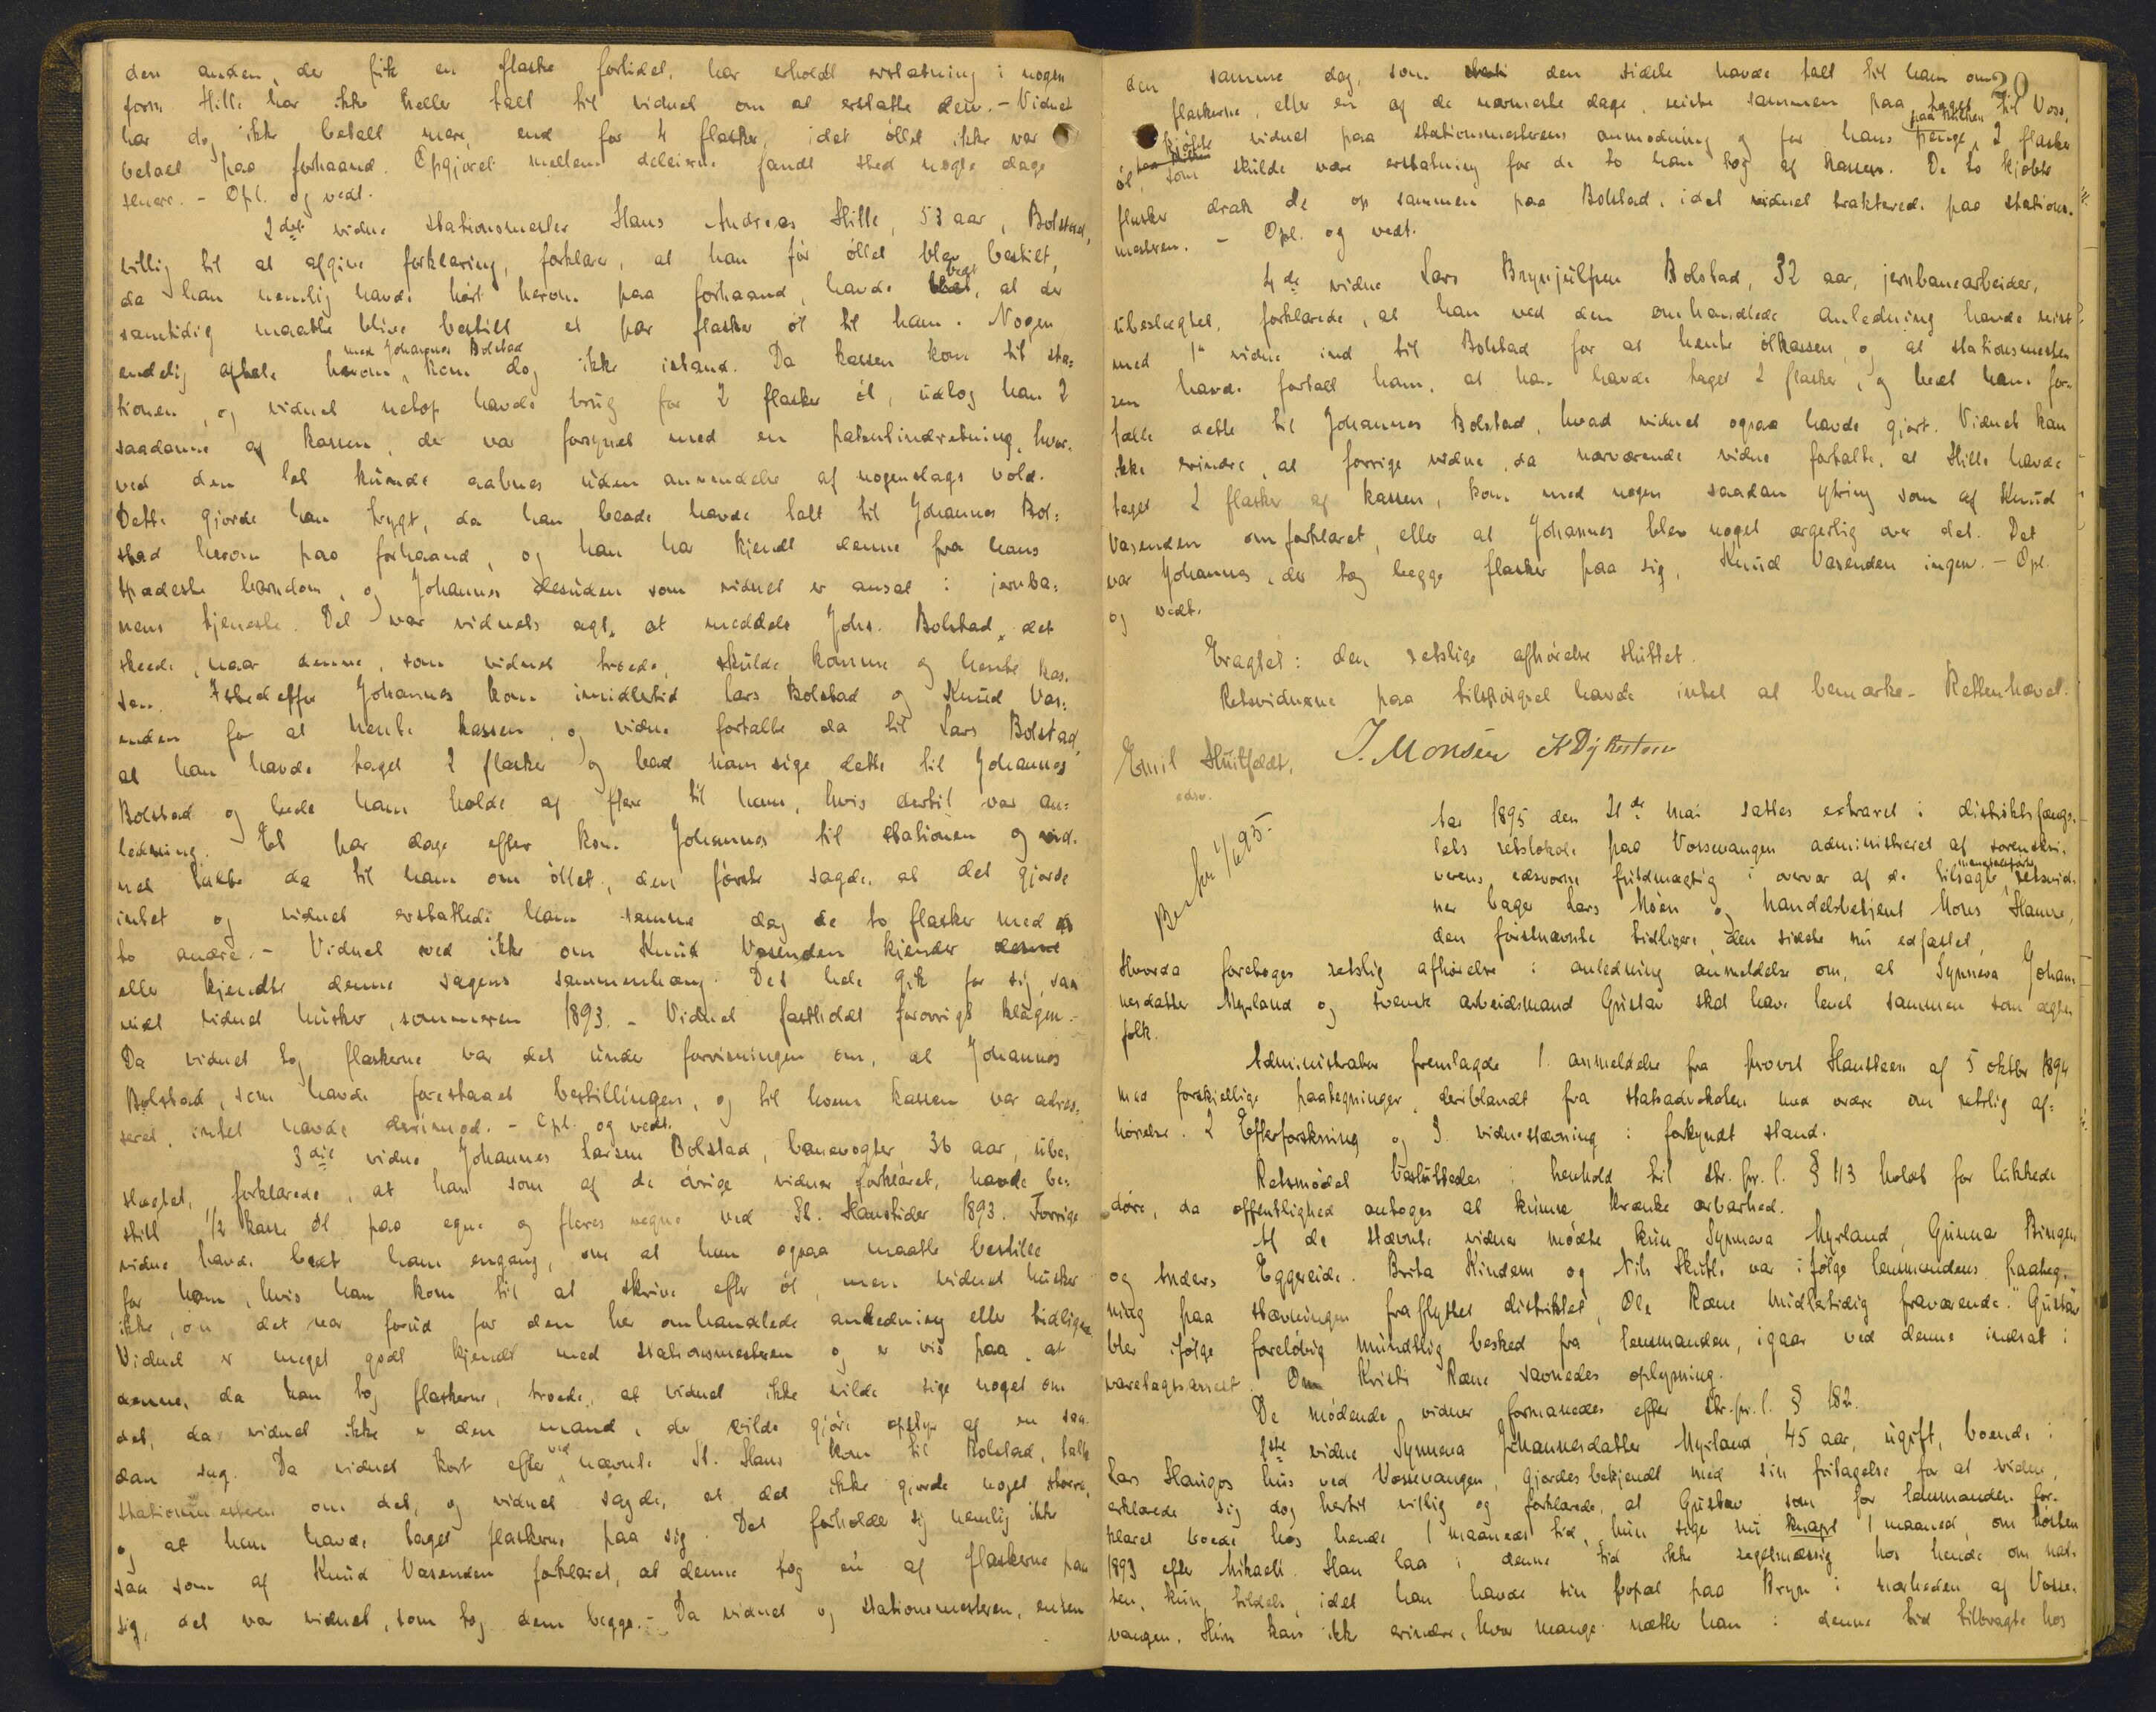 den anden, der fik en flaske fortidet, har erholdt erstatning i nogen
form. Hille har ikke heller talt til vidnet om at erstatte den. - Vidnet
har dog ikke betalt mere, end for 4 flasker, idet øllet ikke var
betalt paa forhaand. Opgjøret mellem deleierne fandt sted nogle dage
senere. - Opl. og vedt.
2det vidne stationsmester Hans Andreas Hille, 53 aar, Bolstad,
villig til at afgive forklaring, forklarer, at han før øllet blev bestilt,
da han nemlig havde hørt herom paa forhaand, havde bedt, at der
samtidig maatte blive bestilt et par flasker øl til ham. Nogen
endelig aftale herom med Johannes Bolstad kom dog ikke istand. Da kassen kom til sta-
tionen, og vidnet netop havde brug for 2 flasker øl, udtog han 2
saadanne af kassen, der var forsynet med en patentindretning, hvor-
ved den let kunde aabnes uden anvendelse af nogenslags vold.
Dette gjorde han trygt, da han baade havde talt til Johannes Bol-
stad herom paa forhaand, og han har kjendt denne fra hans
spædeste barndom, og Johannes desuden som vidnet er ansat i jernba-
nens tjeneste. Det var vidnets agt, at meddele Johs. Bolstad, det
skeede, naar denne, som vidnet troede, skulde komme og hente kas-
sen. Istedetfor Johannes kom imidlertid Lars Bolstad og Knud Vas-
enden for at hente kassen, og vidne fortalte da til Lars Bolstad,
at han havde taget 2 flasker og bad ham sige dette til Johannes
Bolstad og bede ham holde af flere til ham, hvis dertil var an-
ledning. Et par dage efter kom Johannes til stationen og vid-
net talte da til ham om øllet, den første sagde, at det gjorde
intet og vidnet erstattede ham samme dag de to flasker med
to andre. - Vidnet ved ikke om Knud Vasenden kjender
eller kjendte denne sagens sammenhæng. Det hele gik for sig, saa
vidt vidnet husker, sommeren 1893. - Vidnet fastholdt forøvrigt klagen. -
Da vidnet tog flaskerne var det under forvisningen om, at Johannes
Bolstad, som havde forestaaet bestillingen, og til hvem kassen var adres-
seret, intet havde derimod. - Opl. og vedt.
3die vidne Johannes Larsen Bolstad, banevogter, 36 aar, ube-
slægtet, forklarede, at han som af de øvrige vidner forklaret, havde be-
stilt 1/2 kasse øl paa egne og fleres vegne ved St. Hanstider 1893. Forrige
vidne havde bedt ham engang, om at han ogsaa maatte bestille
for ham, hvis han kom til at skrive efter øl, men vidnet husker
ikke, om det var forud for den her omhandlede anledning eller tidligere.
Vidnet er meget godt kjendt med stationsmesteren og er vis paa, at
denne, da han tog flaskerne, troede, at vidnet ikke vilde sige noget om
det, da vidnet ikke er den mand, der vilde gjøre opstyr af en saa-
dan sag. Da vidnet kort efter ved nævnte St. Hans kom til Bolstad, talte
stationsmesteren om det, og vidnet sagde, at det ikke gjorde noget større,
og at han havde taget flaskerne paa sig. Det forholdt sig nemlig ikke
saa som af Knud Vasenden forklaret, at denne tog en af flaskerne paa
sig, det var vidnet, som tog dem begge. - Da vidnet og stationsmesteren, enten
20
den samme dag, som den sidste havde talt til ham om
flaskerne, eller en af de nærmeste dage, reiste sammen paa toget til Voss,
kjøbte vidnet paa stationsmesterens anmodning og for hans penge paa 2 flasker
øl, som skulde være erstatning for de to han tog af kassen. De to kjøbte
flasker drak de op sammen paa Bolstad, idet vidnet trakterede paa stations-
mesteren. - Opl. og vedt.
4de vidne Lars Brynjulfsen Bolstad, 32 aar, jernbanearbeider,
ubeslægtet, forklarede, at han ved den omhandlede anledning havde reist
med 1ste vidne ind til Bolstad for at hente ølkassen, og at stationsmeste-
ren havde fortalt ham, at han havde taget 2 flasker, og bedt ham for-
tælle dette til Johannes Bolstad, hvad vidnet ogsaa havde gjort. Vidnet kan
ikke erindre, at forrige vidne, da nærværende vidne fortalte, at Hille havde
taget 2 flasker af kassen, kom med nogen saadan ytring som af Knud
Vasenden omforklaret, eller at Johannes blev noget ærgerlig over det. Det
var Johannes, der tog begge flasker paa sig, Knud Vasenden ingen. - Opl.
og vedt.
Eragtet: den retslige afhørelse sluttet.
Retsvidnerne paa tilspørgsel havde intet at bemærke. - Retten hævet.
Emil Huitfeldt, J. Monsen K Dykesteen
edsv.
Besk. 1/6 95.
Aar 1895 den 21de mai sattes extraret i distriktsfængs-
lets retslokale paa Vossevangen administreret af sorenskri-
verens edsvorne fuldmægtig i overvær af de tilsagte, retsvid-
ner bager Lars Moen og handelsbetjent Mons Hamre,
den førstnævnte tidligere, den sidste nu edfæstet.
Hvorda foretoges retslig afhørelse i anledning anmeldelse om, at Synneva Johan-
nesdatter Myrland og svensk arbeidsmand Gustav skal have levet sammen som ægte-
folk.
Administrator fremlagde 1. anmeldelse fra provst Hansteen af 5 oktbr 1894
med forskjellige paategninger, deriblandt fra statsadvokaten med ordre om retslig af-
hørelse. 2 Efterforskning og 3. vidnestævning i forkyndt stand.
Retsmødet besluttedes i henhold til str. pr. l. § 113 holdt for lukkede
døre, da offentlighed antoges at kunne krænke ærbarhed.
Af de stævnte vidner mødte kun Synneva Myrland, Gunnar Ringen
og Anders Eggereide. Brita Kindem og Nils Skutle var ifølge lensmandens paateg-
ning paa stævningen fraflyttet distriktet, Ole Røne midlertidig fraværende. Gustav
blev ifølge foreløbig mundtlig besked fra lensmanden, igaar ved denne indsat i
varetægtsarrest. Om Kristi Røne savnedes oplysning.
De mødende vidner formanedes efter str. pr. l. § 182.
1ste vidne Synneva Johannesdatter Myrland, 45 aar, ugift, boende i
Lars Haugos hus ved Vossevangen, gjordes bekjendt med sin fritagelse for at vidne,
erklærede sig dog hertil villig og forklarede, at Gustav som for lensmanden for-
klaret boede hos hende 1 maaneds tid, hun siger nu knapt 1 maaned, om høsten
1893 efter Mikaeli. Han laa i denne tid ikke regelmæssig hos hende om nat-
ten, kun tildels, idet han havde sin bopæl paa Bryn i nærheden af Vosse-
vangen. Hun kan ikke erindre, hvor mange nætter han i denne tid tilbragte hos